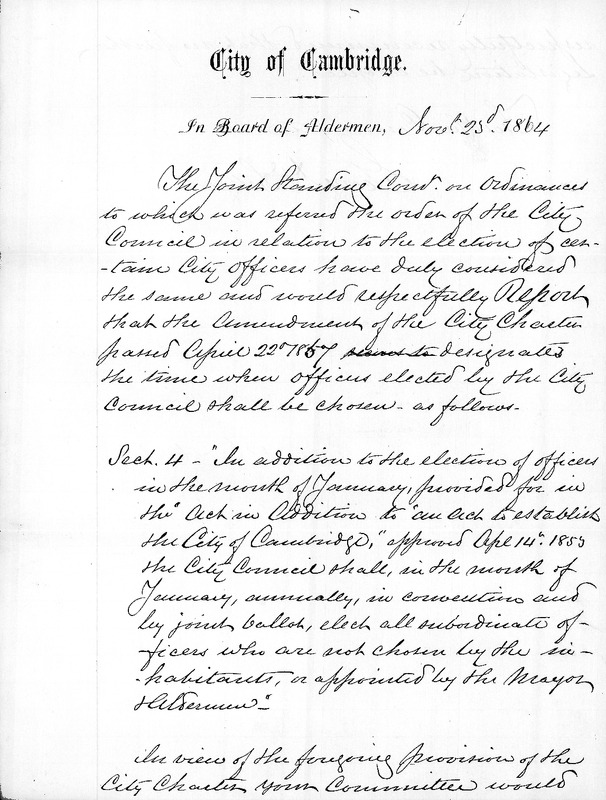 City of Cambridge.
In Board of Aldermen, Novr. 23d. 1864
The Joint Standing Comt. on Ordinances
to which was referred the order of the City
Council in relation to the election of cer-
-tain City Officers have duly considered
the same and would respectfully Report
that the Amendment of the City Charter
passed April 22d 1857 designates
the time when officers elected by the City
Council shall be chosen - as follows -
Sect. 4 - "In addition to the election of officers
in the month of January, provided for in
the "Act in Addition to "an Act to establish
the City of Cambridge," approved Apl 14th. 1853
the City Council shall, in the month of
January, annually, in convention and
by joint ballot, elect all subordinate of-
-ficers who are not chosen by the in-
-habitants, or appointed by the Mayor
& Aldermen"-
In view of the foregoing provision of the
City Charter your Committee would